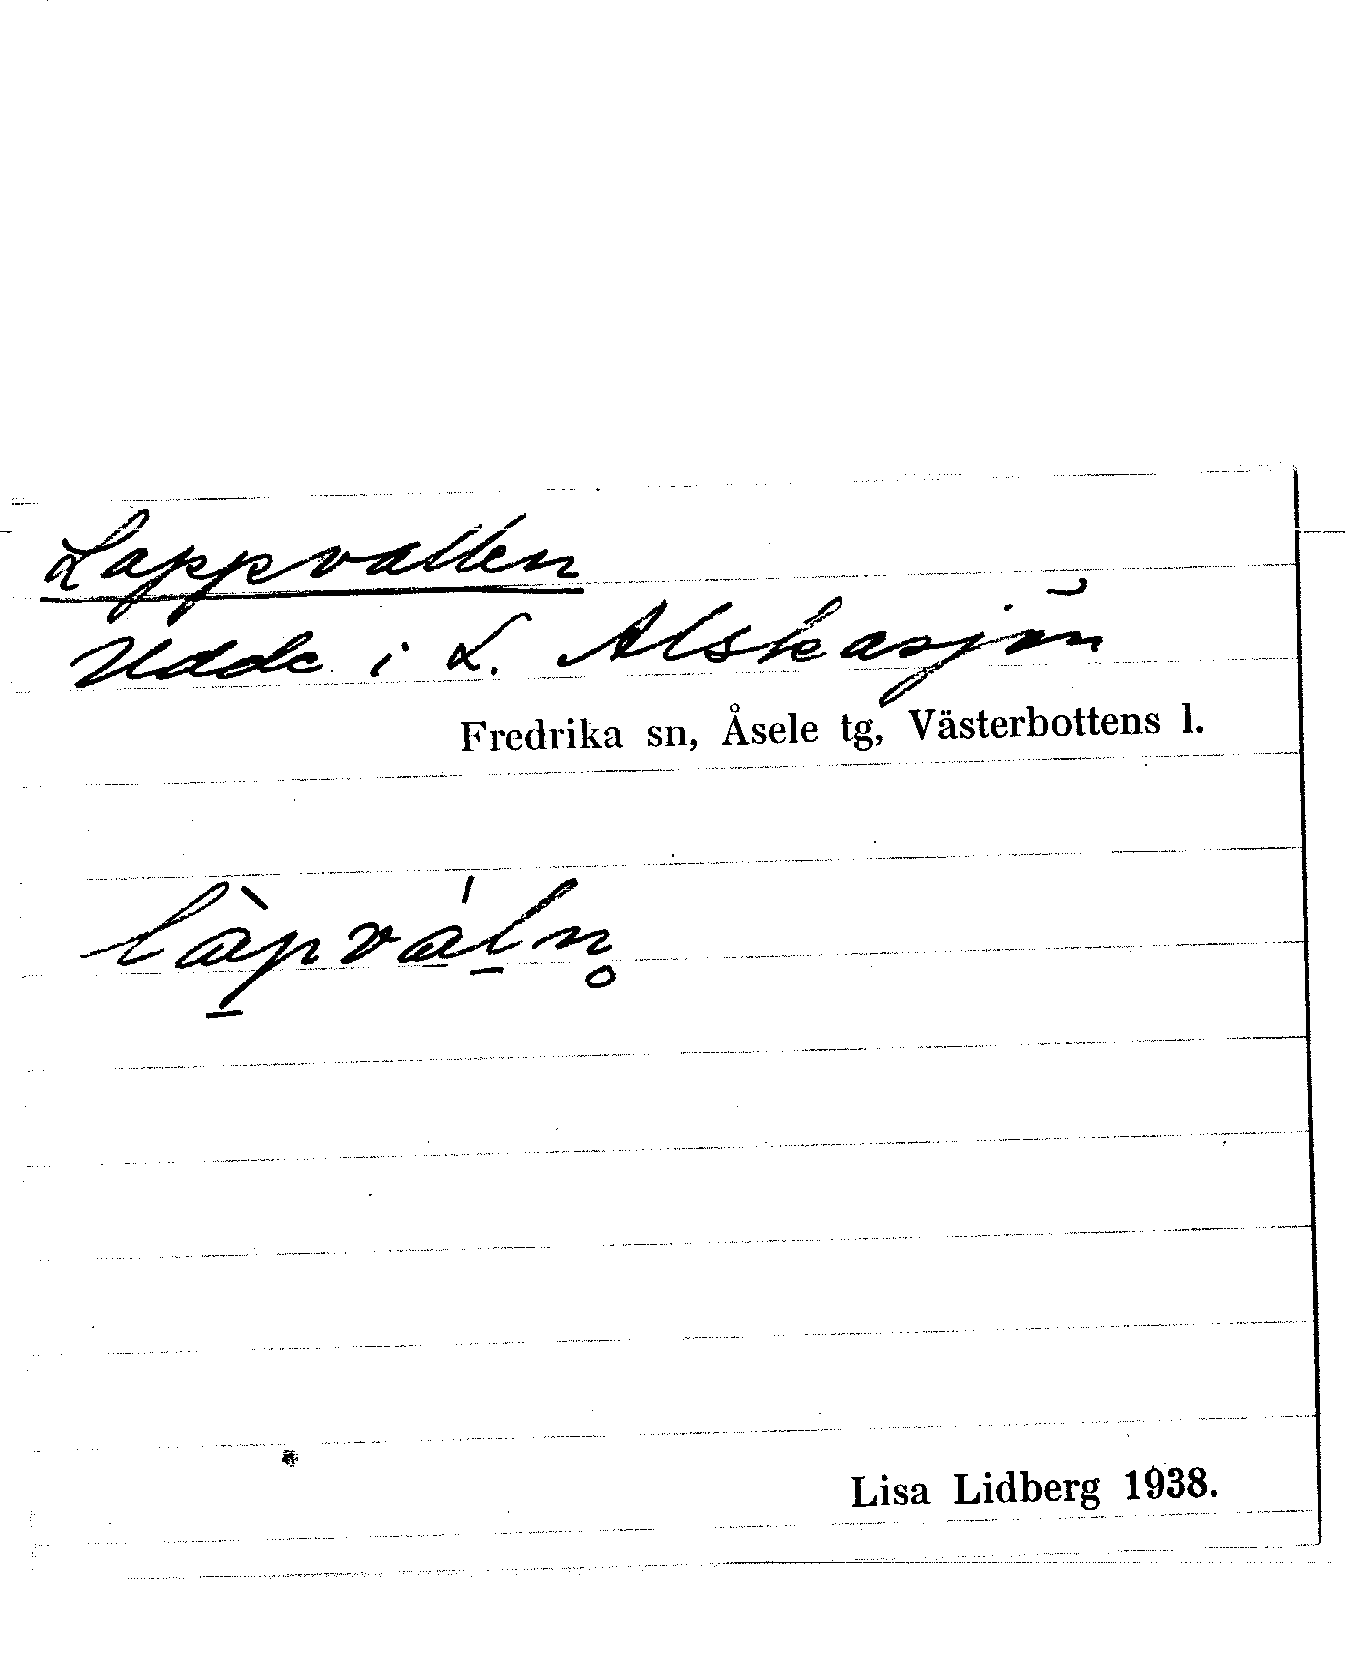 Lappvallen
Udde i L. Alskasjön
Fredrika sn, Åsele tg, Västerbottens l.
là̱pváḻn̥
Lisa Lidberg 1938.